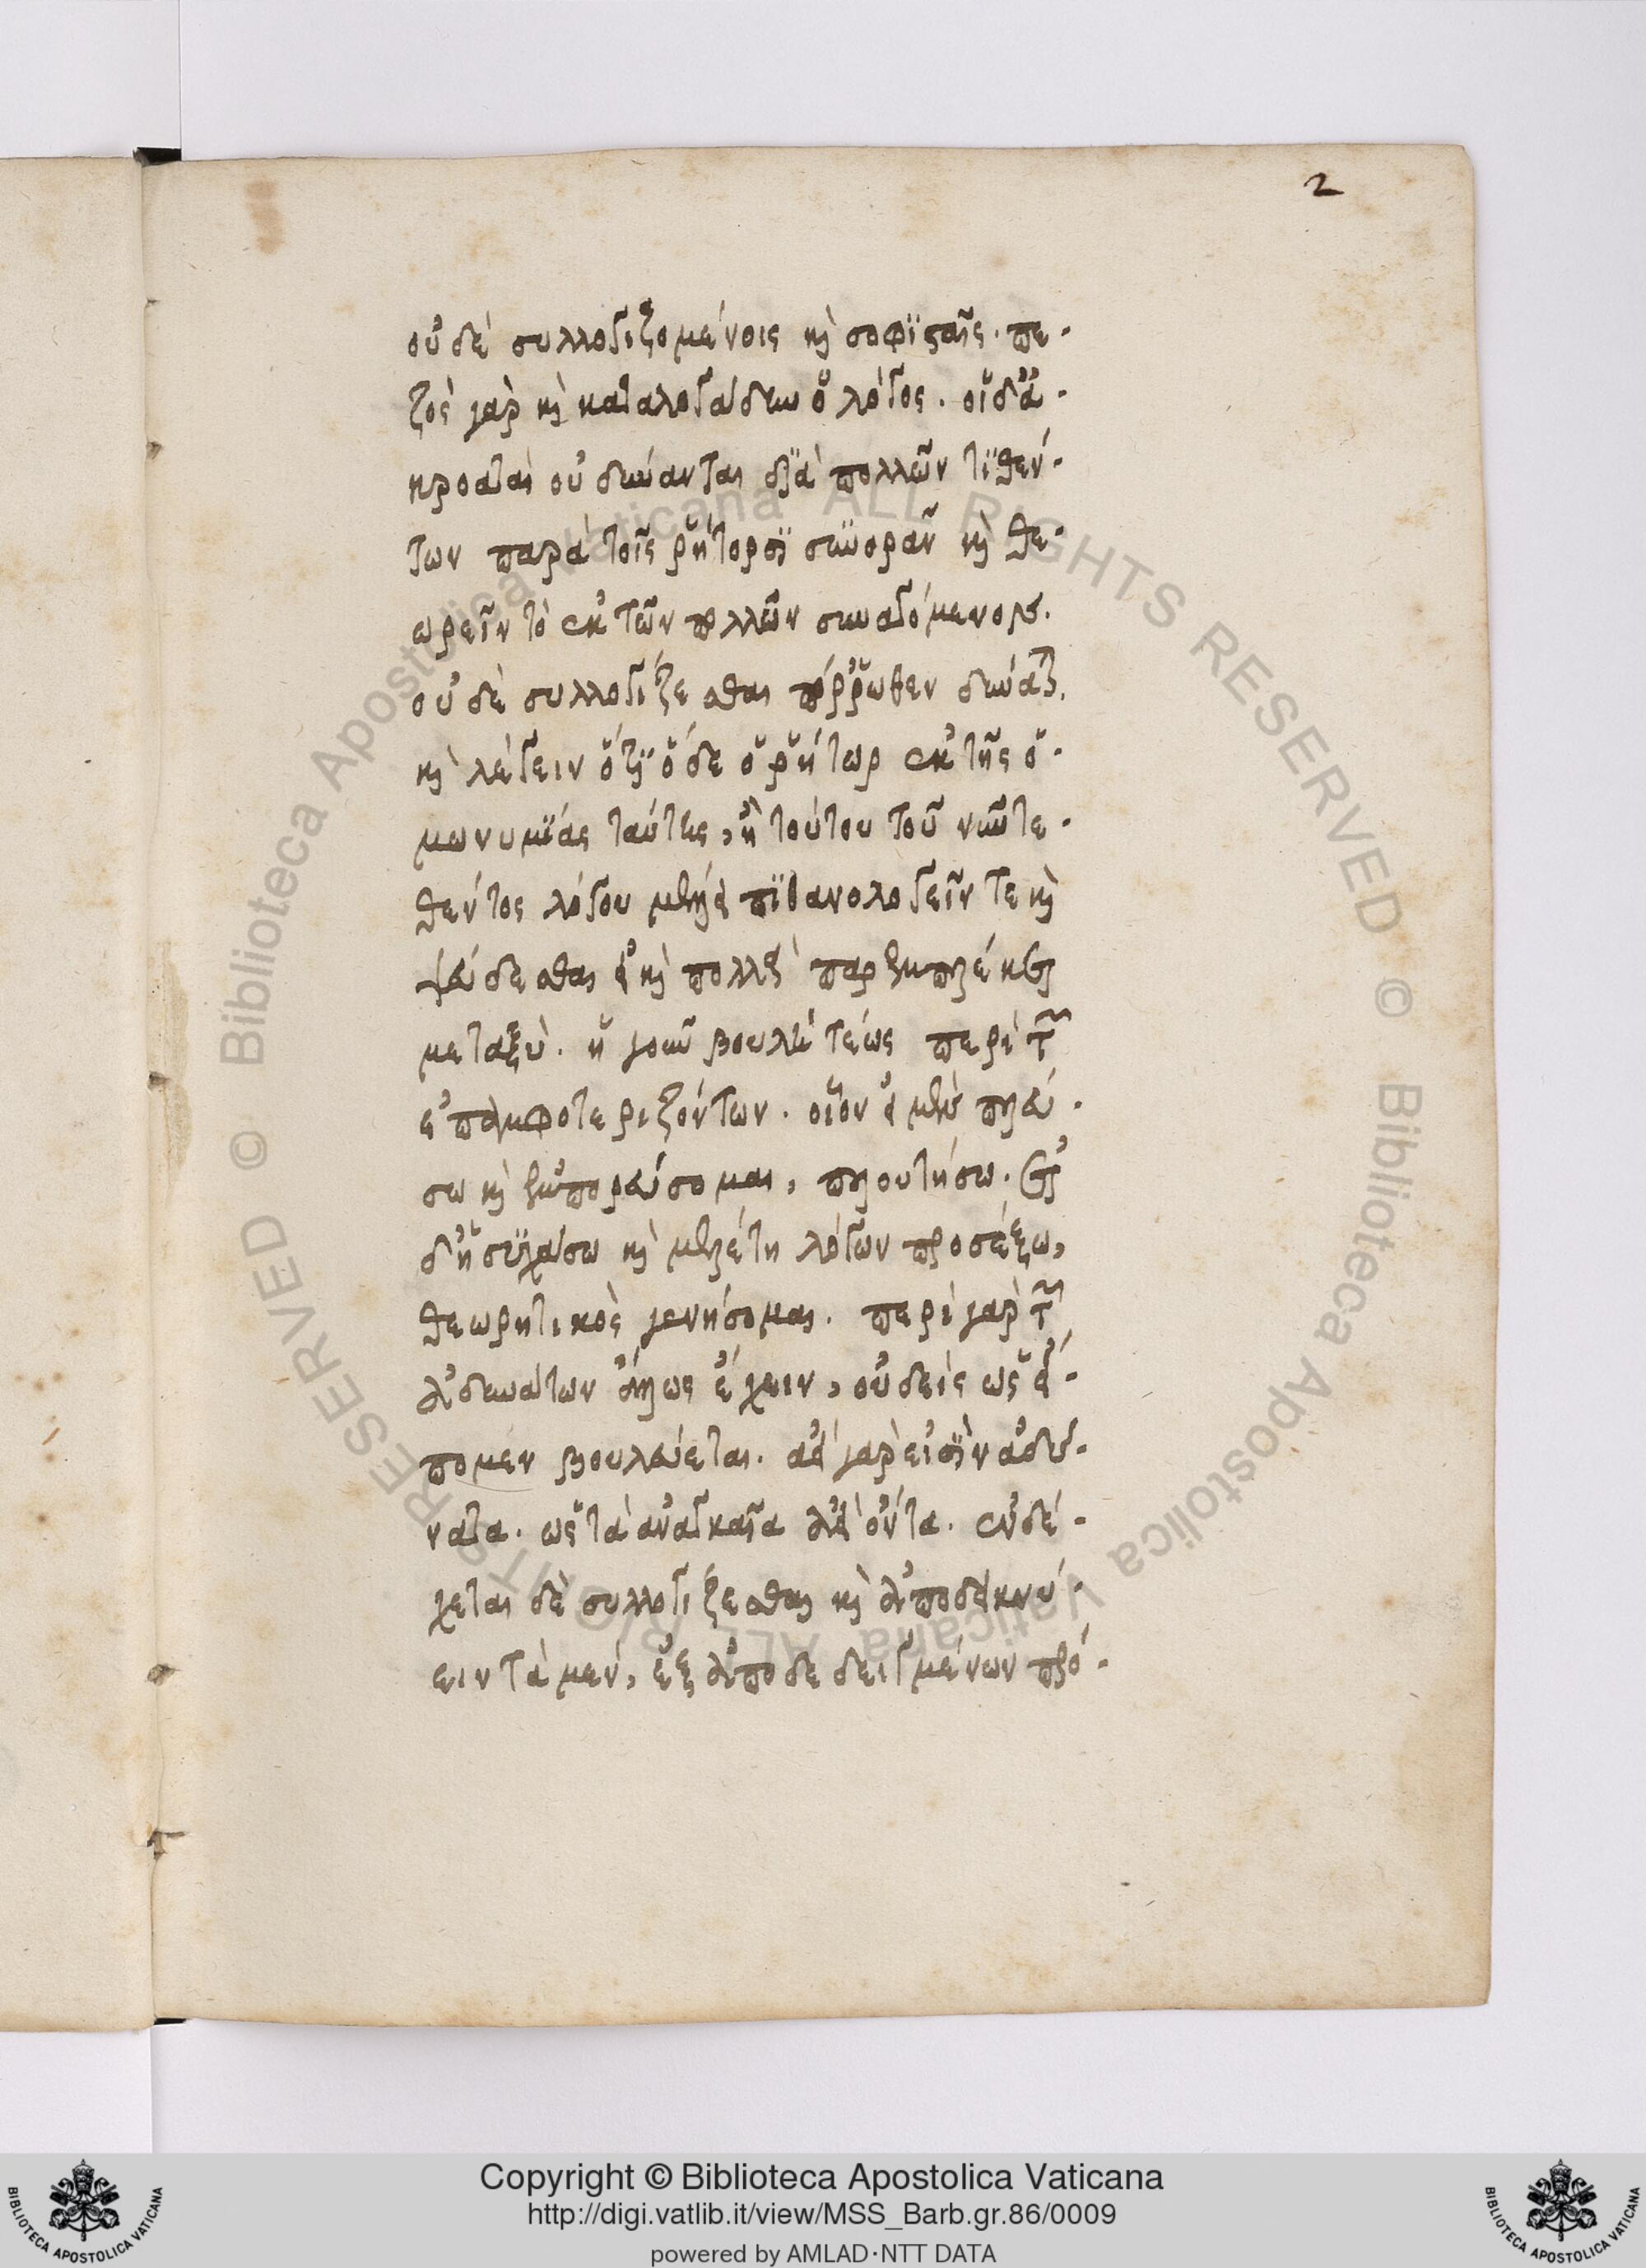 2
οὐδὲ συλλογιζομένοις καὶ σοφϊσταῖς. πε-
ζὸς γὰρ καὶ καταλογάδην ὁ λόγος. οἱ δ' ἀ-
κροαταὶ οὐ δύνανται δϊὰ πολλῶν τϊθέν-
των παρὰ τοῖς ῥήτορσϊ συνορᾶν καὶ θε-
ωρεῖν τὸ ἐκ τῶν πολλῶν συναγόμενον.
οὐδὲ συλλογίζεσθαι πόρρωθεν δύναται.
καὶ λέγειν ὅτϊ ὅδε ὁ ῥήτωρ ἐκ τῆς ὁ-
μωνυμϊας ταύτης, ἢ τούτου τοῦ νῦν τε-
θέντος λόγου μέλλει πϊθανολογεῖν τε καὶ
ψεύδεσθαι εἰ καὶ πολλὰ παρεμπλέκει
μεταξύ. ἡ γοῦν βουλή τέως περὶ τῶν
ἐπαμφοτεριζόντων. οἷον εἰ μὲν πλεύ-
σω καὶ ἐμπορεύσομαι, πλουτήσω. εἰ
δ' ἡσυχάσω καὶ μελέτη λόγων προσέξω,
θεωρητικὸς γενήσομαι. περὶ γὰρ τῶν
ἀδυνάτων ἄλλως ἔχειν, οὐδεὶς ὡς εἴ-
πομεν βουλεύεται. ἀεὶ γὰρ εἰσϊν ἀδύ-
νατα. ὡς τὰ ἀναγκαῖα ἀεὶ ὄντα. ἐνδέ-
χεται δὲ συλλογίζεσθαι καὶ ἀποδεικνύ-
ειν τὰ μὲν, ἐξ ἀποδεδειγμένων πρό-
Copyright © Biblioteca Apostolica Vaticana
http://digi.vatlib.it/view/MSS_Barb.gr.86/0009
powered by AMLAD·NTT DATA
BIBLIOTECA APOSTOLICA VATICANA
BIBLIOTECA APOSTOLICA VATICANA
© Biblioteca Apostolica Vaticana ALL RIGHTS RESERVED © Biblioteca Apostolica Vaticana ALL RIGHTS RESERVED